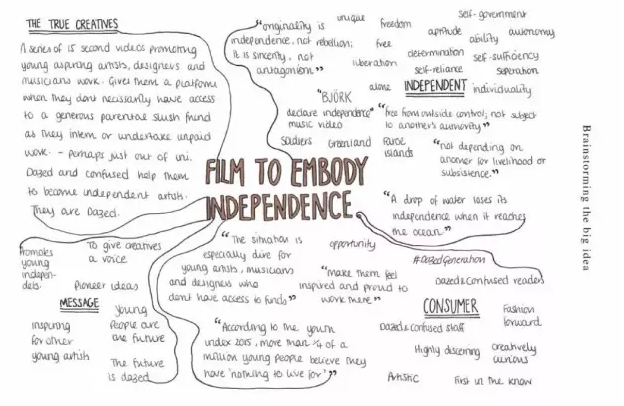 THE TRUE CREATIVES
A series of 15 second videos promoting
young aspiring artists, designers and
musicians work. Gives them a platform
when they dont necessarily have access
to a generous parental slush fund
as they intern or undertake unpaid
work. - perhaps just out of uni.
Dazed and confused help them
to become independent artists.
They are Dazed.
"originality is
independence, not rebellion;
it is sincerity, not
antagonism"
unique
freedom
free
liberation
self-government
aptitude
ability
autonomy
determination
self-sufficiency
self-reliance
seperation
alone
INDEPENDENT
individuality
"BJÖRK
declare independence"
music video
Soldiers
Greenland
Faroe
islands
"free from outside control; not subject
to another's authority"
"not depending on
another for livelihood or
subsistence."
FILM TO EMBODY
INDEPENDENCE
"A drop of water loses its
independence when it reaches
the ocean"
Promotes
young
indepen-
dets
To give creatives
a voice
Pioneer ideas
MESSAGE
inspiring
for other
young artists
Young
People are
the future
The future
is dazed
"The situation is
especially dire for
young artists, musicians
and designers who
don't have access to funds"
opportunity
"make them feel
inspired and proud to
work there"
"According to the youth
index 2015, more than 1/4 of a
million young people believe they
have 'nothing to live for'"
#DazedGeneration
Dazed & Confused readers
CONSUMER
Fashion
forward
Dazed & confused staff
Highly discerning
creatively
curious
Artistic
First in the know
Brainstorming the big idea